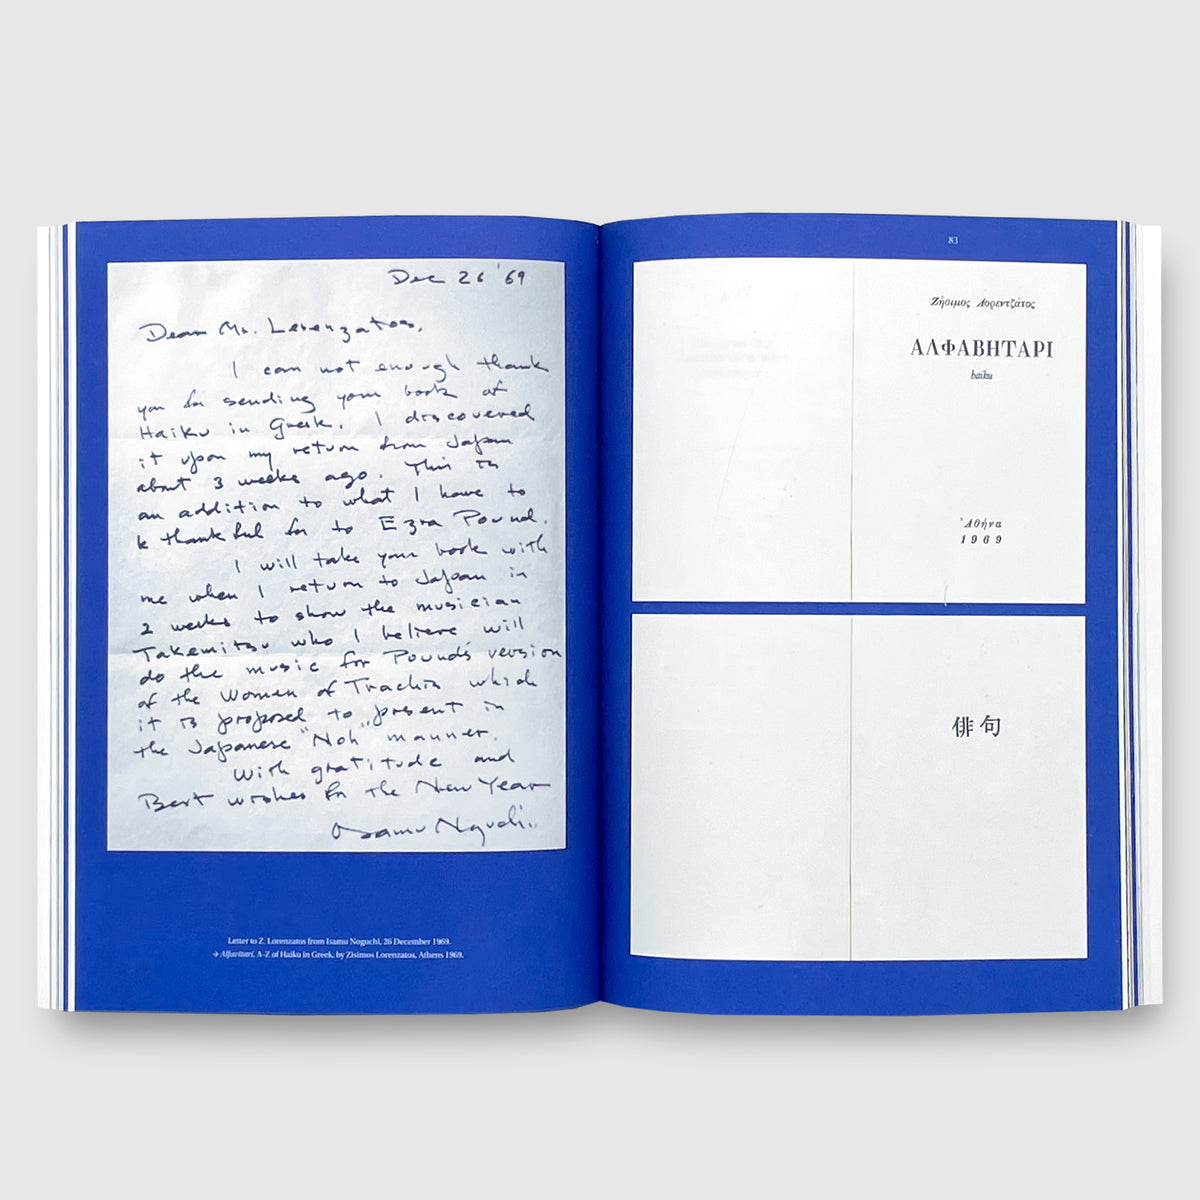 Dec 26 '69
Dear Mr. Lorenzatos,
I can not enough thank
you for sending your book of
Haiku in Greek. I discovered
it upon my return from Japan
about 3 weeks ago. This is
an addition to what I have to
be thankful for to Ezra Pound.
I will take your book with
me when I return to Japan in
2 weeks to show the musician
Takemitsu who I believe will
do the music for Pound's version
of the Women of Trachis which
it is proposed to present in
the Japanese "Noh" manner.
With gratitude and
Best wishes for the New Year
Isamu Noguchi
Letter to Z. Lorenzatos from Isamu Noguchi, 26 December 1969.
→ Alfavitari, A-Z of Haiku in Greek, by Zisimos Lorenzatos, Athens 1969.
83
Ζήσιμος Λορεντζάτος
ΑΛΦΑΒΗΤΑΡΙ
haiku
Ἀθήνα
1969
俳句